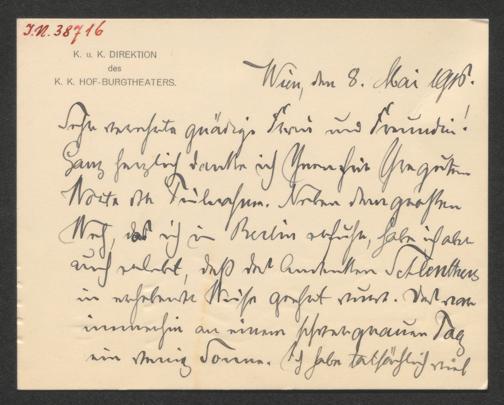 J.N. 38716
K. u. K. DIREKTION
des
K. K. HOF-BURGTHEATERS.
Wien, den 8. Mai 1916.
Sehr verehrte gnädige Frau und Freundin!
Ganz herzlich danke ich Ihnen für Ihre guten
Worte der Teilnahme. Neben dem großen
Weh, das ich in Berlin erfuhr, habe ich aber
auch erlebt, daß das Andenken Schlenthers
in erhebender Weise geehrt wurde. Das war
immerhin an einem schwergrauen Tag
ein wenig Sonne. Ich habe tatsächlich viel